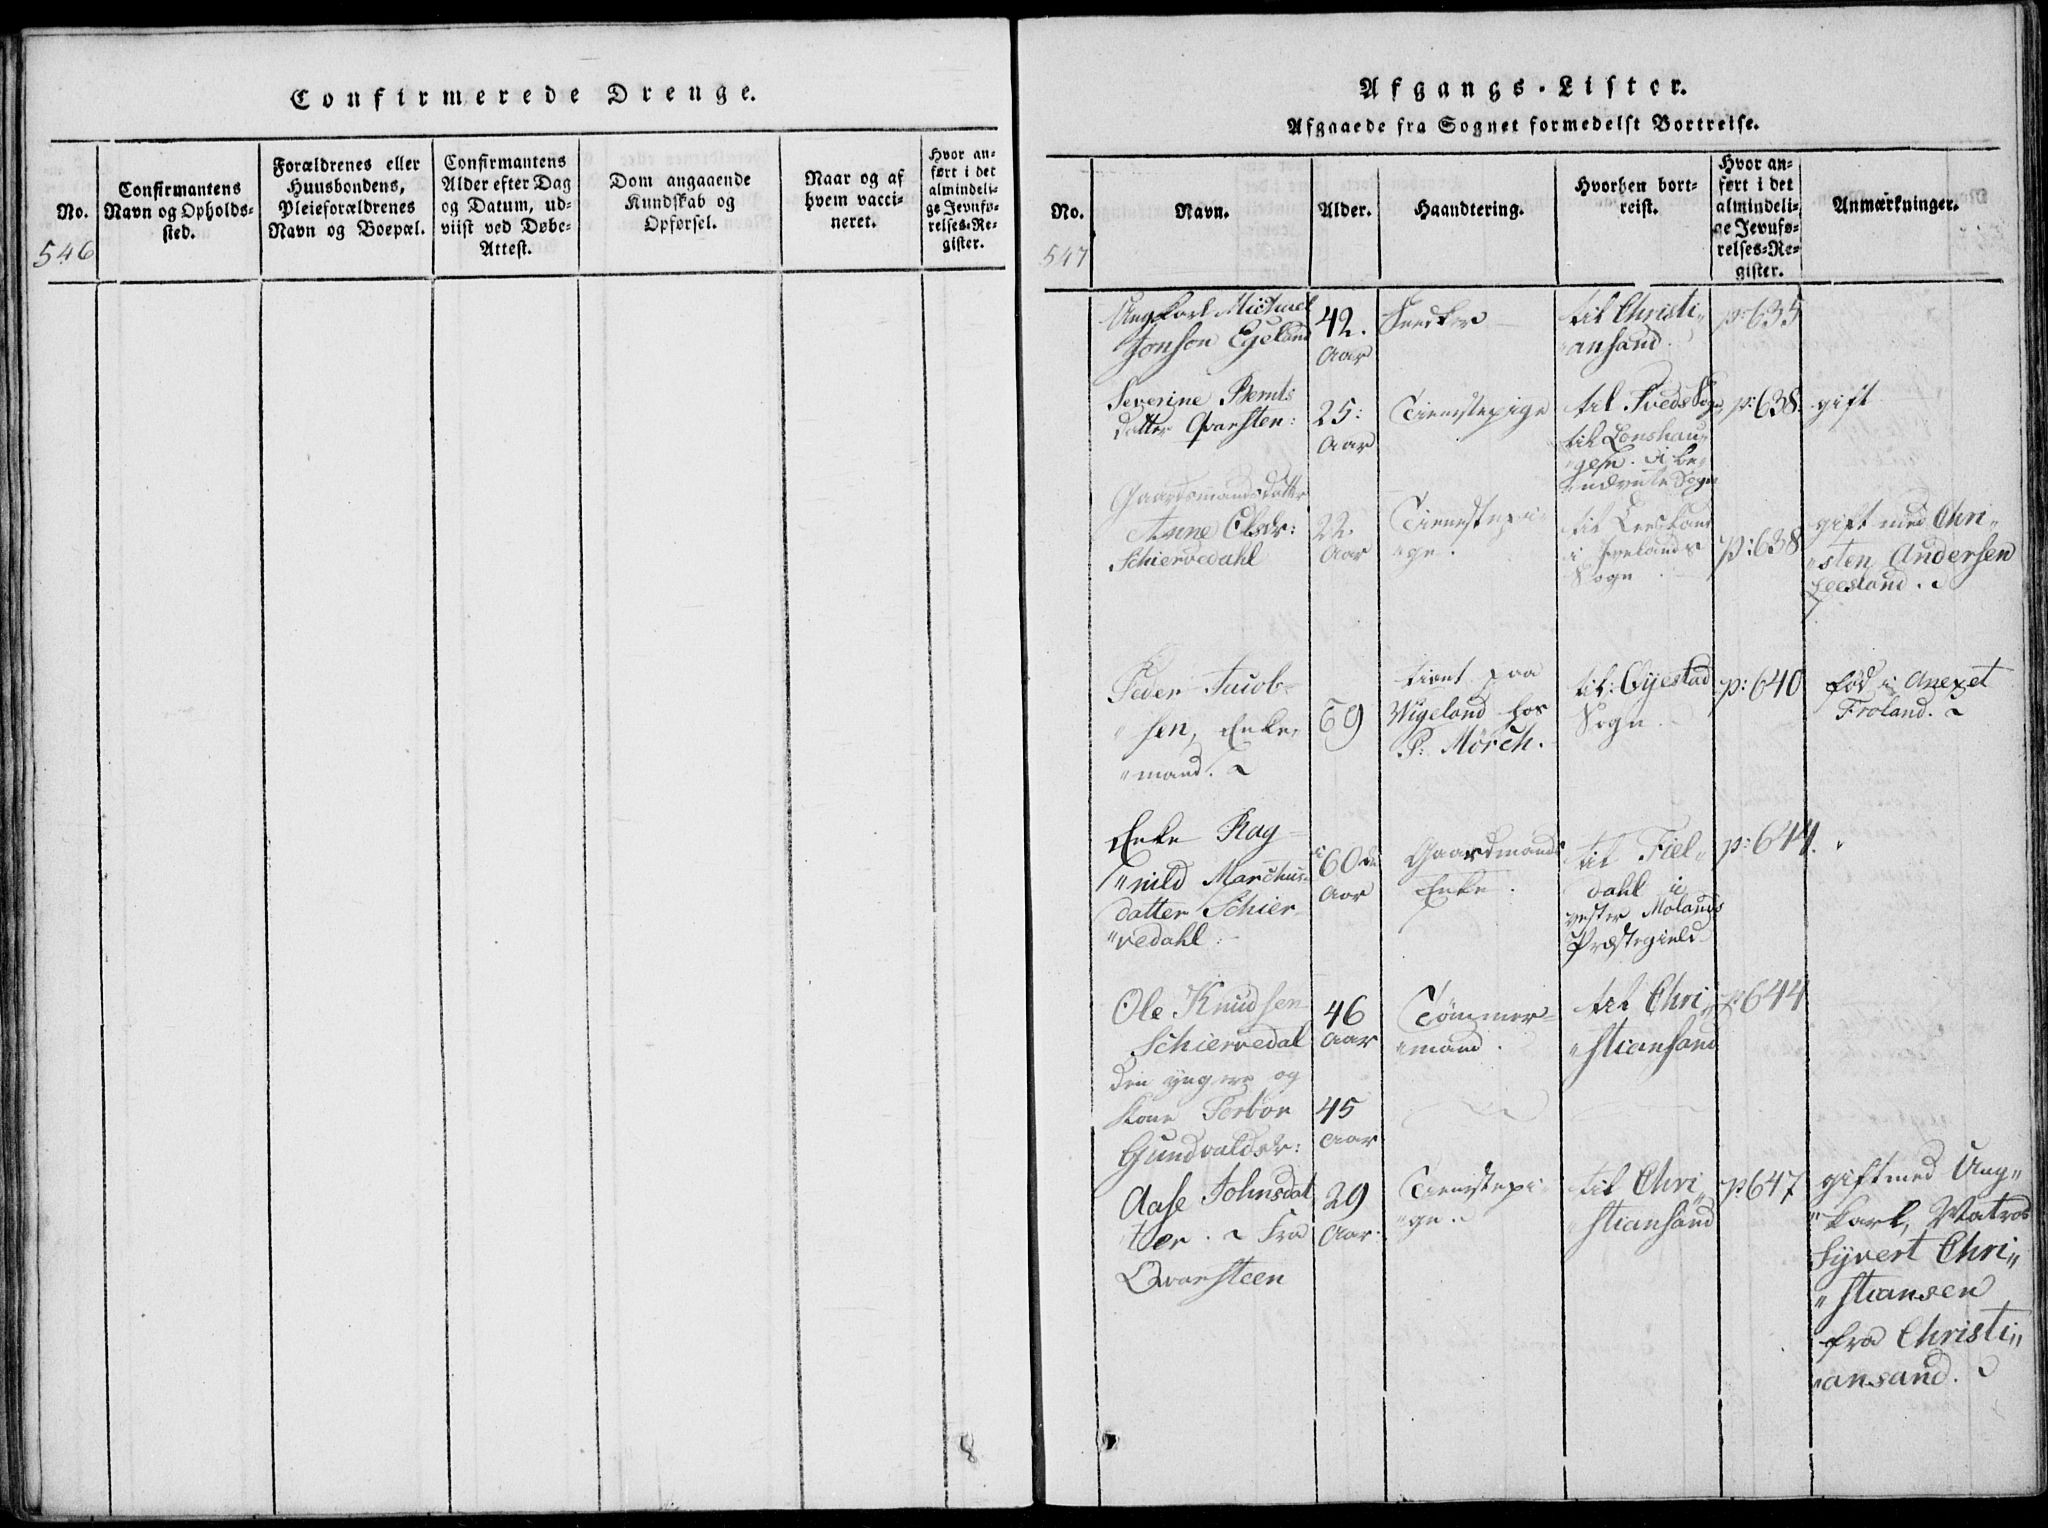 Confirmerede Drenge.
No.
Confirmantens
Navn og Opholds-
sted.
Forældrenes eller
Huusbondens,
Pleieforældrenes
Navn og Boepæl.
Confirmantens
Alder efter Dag
og Datum, ud-
viist ved Døbe-
Attest.
Dom angaaende
Kundskab og
Opførsel.
Naar og af
hvem vacci-
neret.
Hvor an-
ført i det
almindeli-
ge Jevnfø-
relses-Re-
gister.
546
8
Afgangs-Lister.
Afgaaede fra Sognet formedelst Bortreise.
No.
Navn.
Alder.
Haandtering.
Hvorhen bort-
reist.
Hvor an-
ført i det
almindeli-
ge Jevnfø-
relses-Re-
gister.
Anmærkninger.
547
Ungkarl Michael
Jonson Egeland
42.
Aar
Snedker
til Christi„
„ansand.
p:635
Severine Bernts
datter Qvarsten:
25:
Aar
Tienestepige
til Tveds Sogn
p:638.
gift
til
i
Sogn
Gaardmandsdatter
Anne Olsdr:
Schiervedahl
22.
Aar
Tienestepi„
„ge.
til
i Frolands
Sogn
p:638
gift med Chri„
„sten Andersen
Peder Jacob„
„sen, Enke„
„mand.
69
tient paa
Wigeland hos
P: Mörch.
til: Öyestad
Sogn
p:640
fød i Anexet
Froland.
Enke Rag„
„nild Marchus„
datter Schier„
„vedahl.
i 60de
Aar
Gaardmands
Enke.
til Fiel„
dahl i
vester Molands
Præstegield
p:644.
Ole Knudsen
Schiervedal
den yngere og
kone Torbor
Gundvaldsdr:
46
Aar
45
Aar
Tömmer„
„mand.
til Chri„
„stiansand
p644
Aase Johnsdat
ter. Fra
Qvarsteen
29
Aar.
Tienestepi„
„ge.
til Chri„
„stiansand
p647
gift med Ung„
„karl, Matros
Syvert Chri„
„stiansen
fra Christi„
„ansand.